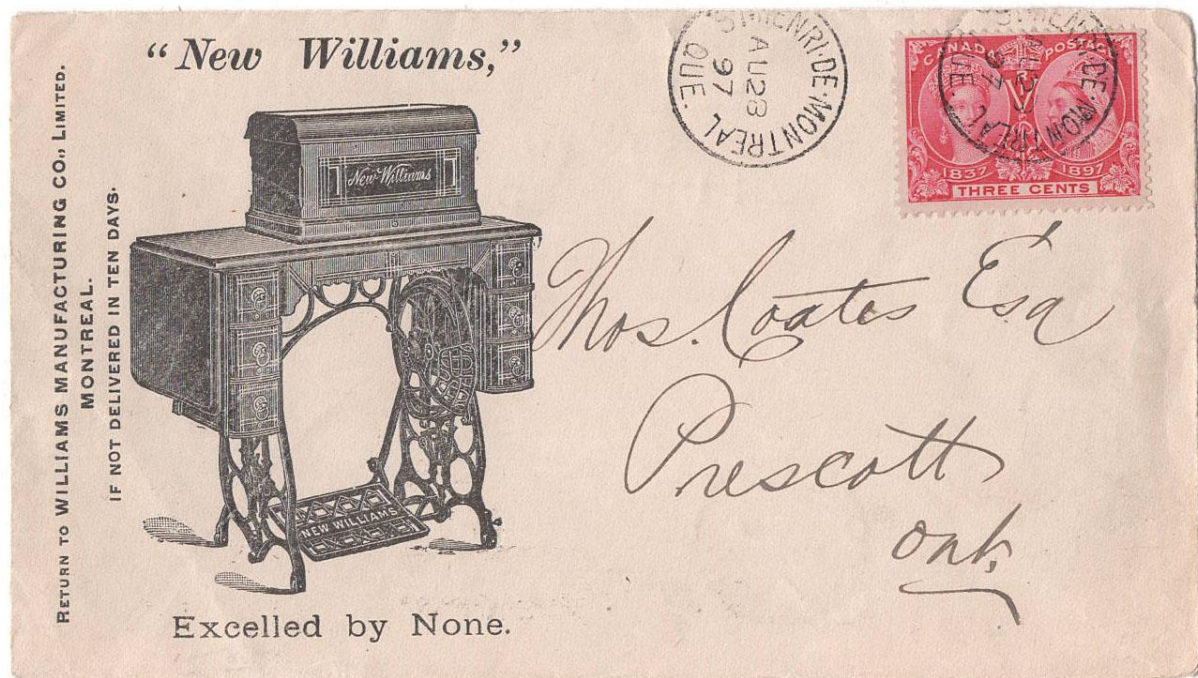 RETURN TO WILLIAMS MANUFACTURING CO., LIMITED.
MONTREAL.
IF NOT DELIVERED IN TEN DAYS.
“New Williams,”
New Williams
NEW WILLIAMS
Excelled by None.
ST HENRI·DE·MONTREAL
AU 28
97
QUE.
CANADA POSTAGE
ST HENRI·DE·MONTREAL
97
QUE.
1837 1897
THREE CENTS
Thos. Coates Esq
Prescott
Ont.